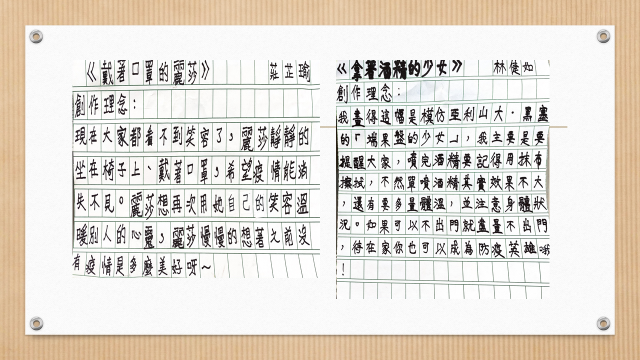 《戴著口罩的麗莎》 莊芷瑜
創作理念：
現在大家都看不到笑容了，麗莎靜靜的
坐在椅子上、戴著口罩，希望疫情能消
失不見。麗莎想再次用她自己的笑容溫
暖別人的心靈，麗莎慢慢的想著之前沒
有疫情是多麼美好呀～
《拿著酒精的少女》 林倢如
創作理念：
我畫得這幅是模仿亞利山大·黑塞
的「端果盤的少女」，我主要是要
提醒大家，噴完酒精要記得用抹布
擦拭，不然單噴酒精其實效果不大
，還有要多量體溫，並注意身體狀
況。如果可以不出門就盡量不出門
，待在家你也可以成為防疫英雄哦
！